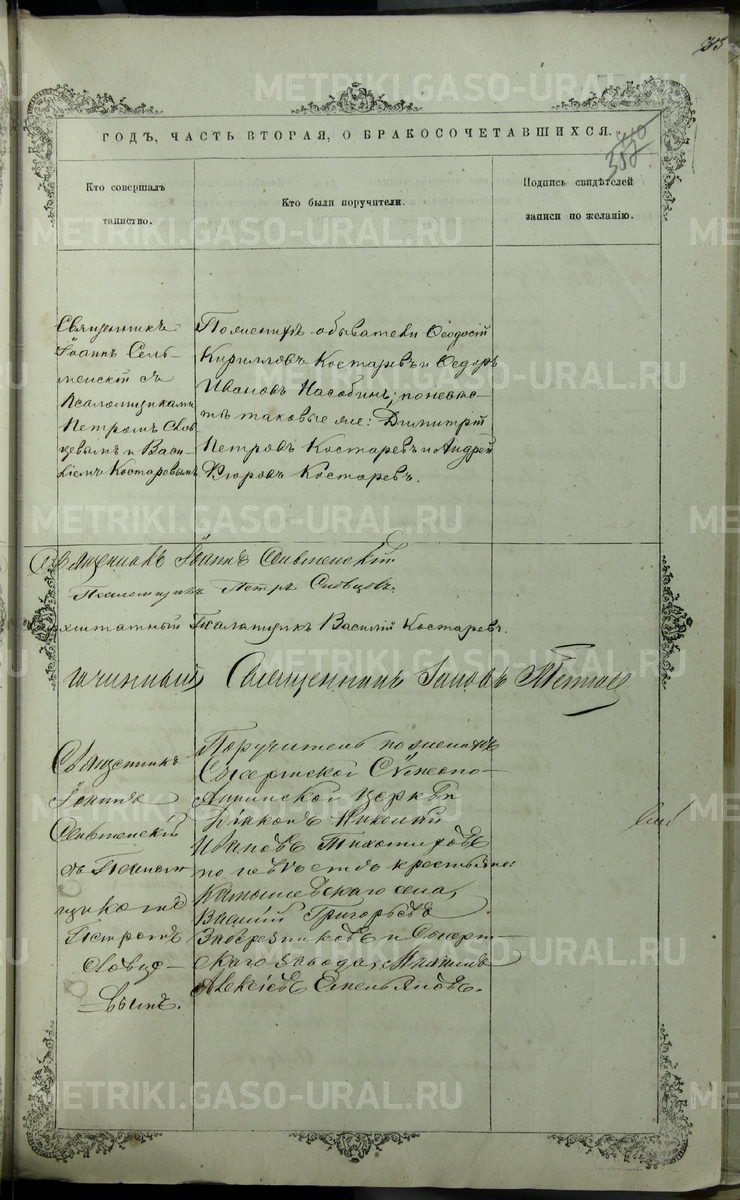 35
ГОДЪ, ЧАСТЬ ВТОРАЯ, О БРАКОСОЧЕТАВШИХСЯ.
Кто совершалъ таинство.
Кто были поручители.
Подпись свидѣтелей записи по желанію.
Священникъ
Іоаннъ Сель-
менскій съ
Псаломщиками
Петромъ Слов
цевымъ и Васи
ліемъ Костаревымъ
По женихѣ обыватели Ѳеодосій
Кирилловъ Костаревъ и Ѳедоръ
Ивановъ Насобинъ; по невѣс-
тѣ таковые же: Димитрій
Петровъ Костаревъ и Андрей
Егоровъ Костаревъ.
Священникъ Іоаннъ Сельменскій
Псаломщикъ Петръ Словцовъ.
Псаломщикъ Василій Костаревъ.
Священникъ
Священникъ
Іоаннъ
Сельменскій
съ Псалом
щикомъ
Петромъ
Словцо-
вымъ.
Поручители по женихѣ
Сысертской Симеоно-
Аннинской церкви
Діаконъ Николай
Ивановъ Тихомировъ
по невѣстѣ крестьяне:
Камышевскаго села,
Василій Григорьевъ
и Сысерт-
скаго завода, Михаилъ
Алексѣевъ Емельяновъ.
METRIKI.GASO-URAL.RU